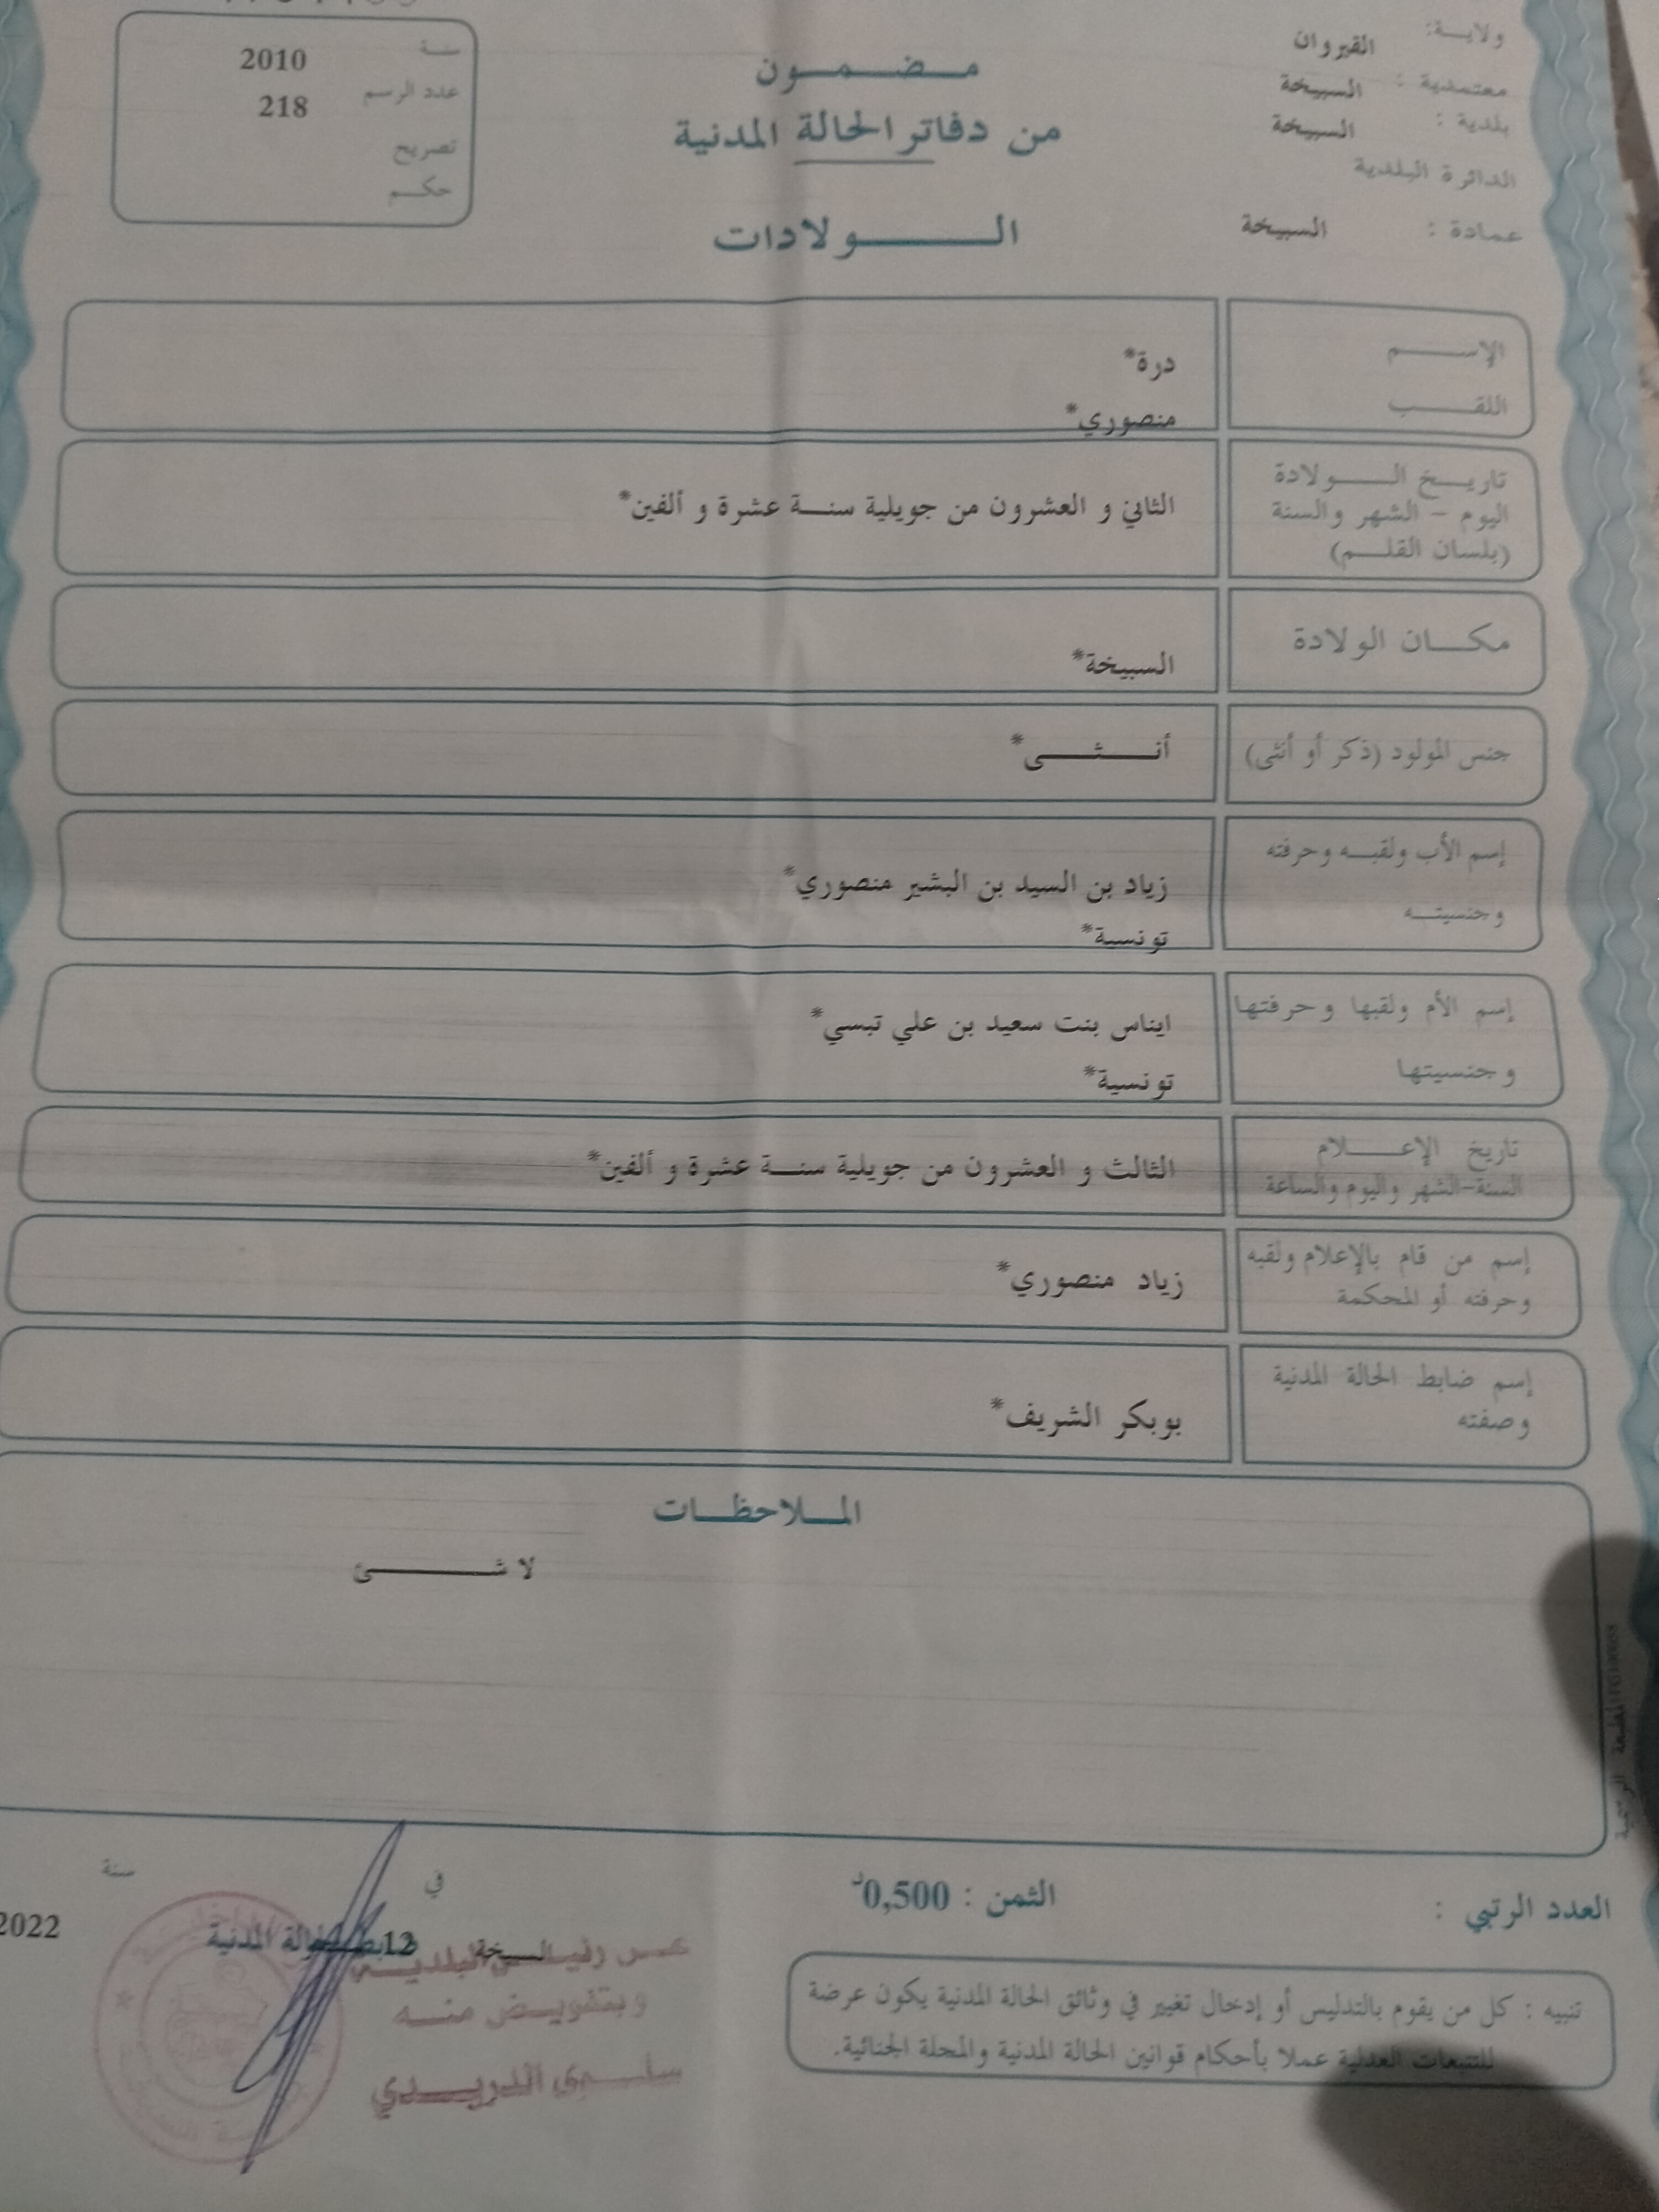 ولاية: القيروان
معتمدية : السبيخة
بلدية : السبيخة
الدائرة البلدية
عمادة : السبيخة
مضمون
من دفاتر الحالة المدنية
الولادات
سنة 2010
عدد الرسم 218
تصريح
حكم
الإسم درة*
اللقب منصوري*
تاريخ الولادة
اليوم - الشهر والسنة الثاني و العشرون من جويلية سنة عشرة و ألفين*
(بلسان القلم)
مكان الولادة السبيخة*
جنس المولود (ذكر أو أنثى) أنثى*
إسم الأب ولقبه وحرفته زياد بن السيد بن البشير منصوري*
وجنسيته تونسية*
إسم الأم ولقبها وحرفتها ايناس بنت سعيد بن علي تبسي*
وجنسيتها تونسية*
تاريخ الإعلام الثالث و العشرون من جويلية سنة عشرة و ألفين*
السنة-الشهر واليوم والساعة
إسم من قام بالإعلام ولقبه زياد منصوري*
وحرفته أو المحكمة
إسم ضابط الحالة المدنية بوبكر الشريف*
وصفته
الملاحظات
لا شئ
العدد الرتبي :
الثمن : 0,500د
في سنة
السبيخة 12 2022
ضابط الحالة المدنية
عن رئيس البلدية
وبتفويض منه
سلوى الدريدي
تنبيه : كل من يقوم بالتدليس أو إدخال تغيير في وثائق الحالة المدنية يكون عرضة
للتتبعات العدلية عملا بأحكام قوانين الحالة المدنية والمجلة الجنائية.
المطبعة الرسمية